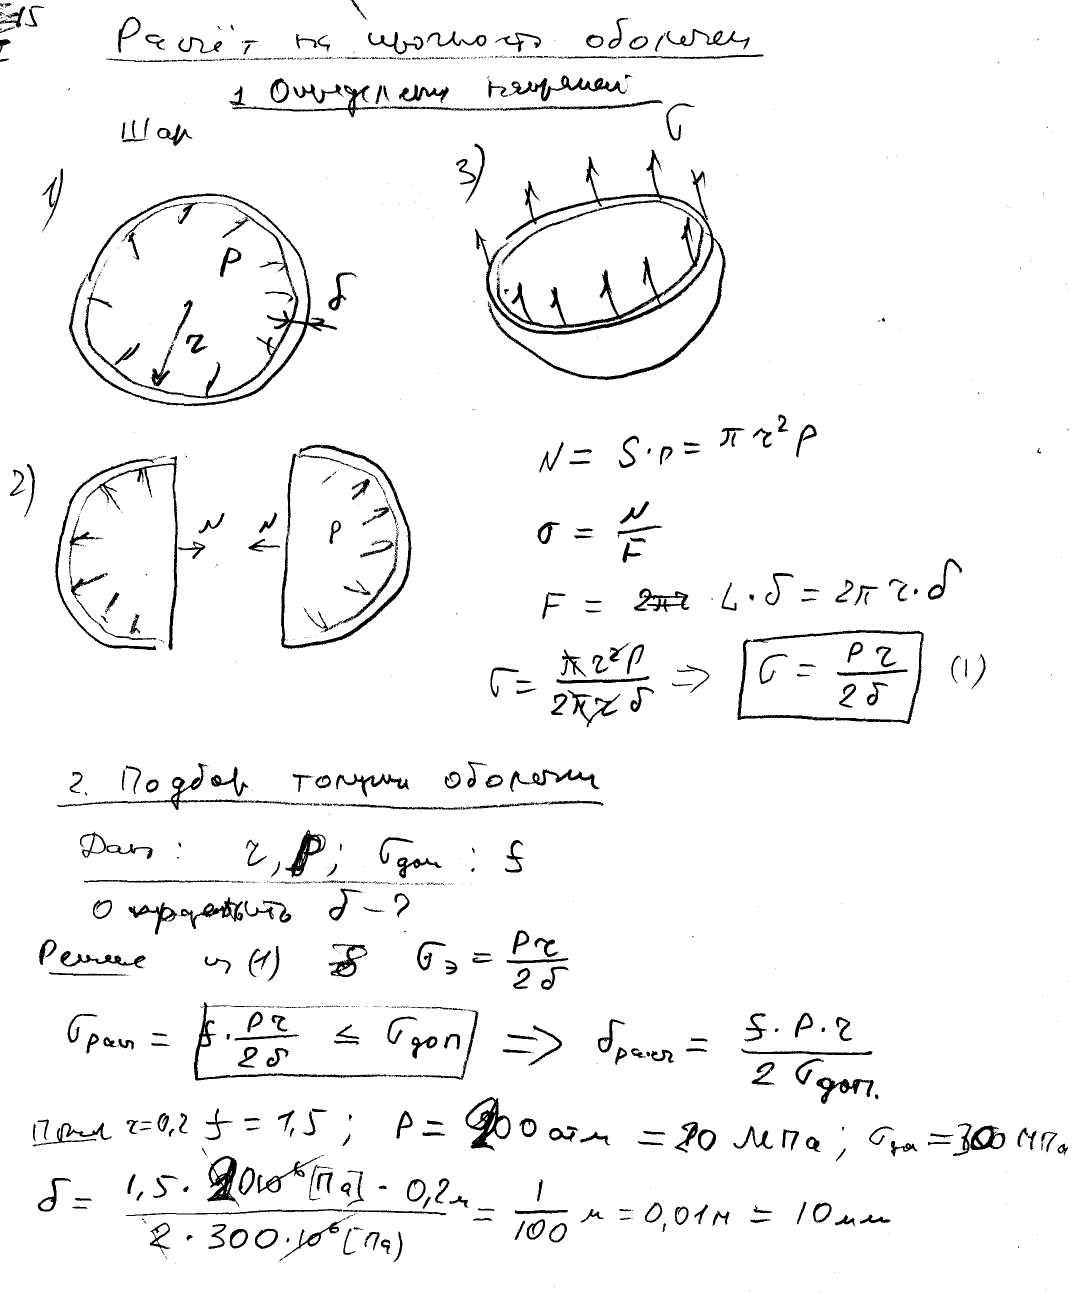 15
Расчёт на прочность оболочек
1 Определение напряжений
Шар
1)
P
δ
r
3)
σ
2)
N
N
P
N = S·p = π r² P
σ = N / F
F = 2πr L·δ = 2π r·δ
σ = π r² P / 2π r δ ⇒ σ = P r / 2 δ (1)
2. Подбор толщины оболочки
Дано: r, P; σдоп : f
Определить δ - ?
Решение из (1) σэ = P r / 2 δ
σрасч = f · P r / 2 δ ≤ σдоп ⇒ δрасч = f · P · r / 2 σдоп.
Прим r=0,2 f = 1,5 ; P = 200 атм = 20 МПа ; σдоп = 300 МПа
δ = 1,5 · 20·10⁶ [Па] · 0,2м / 2 · 300·10⁶ [Па] = 1 / 100 м = 0,01м = 10 мм